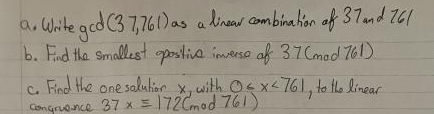 a. Write gcd(37,761) as a linear combination of 37 and 761
b. Find the smallest positive inverse of 37 (mod 761)
c. Find the one solution x, with 0 ≤ x < 761, to the linear
congruence 37 x ≡ 172 (mod 761)